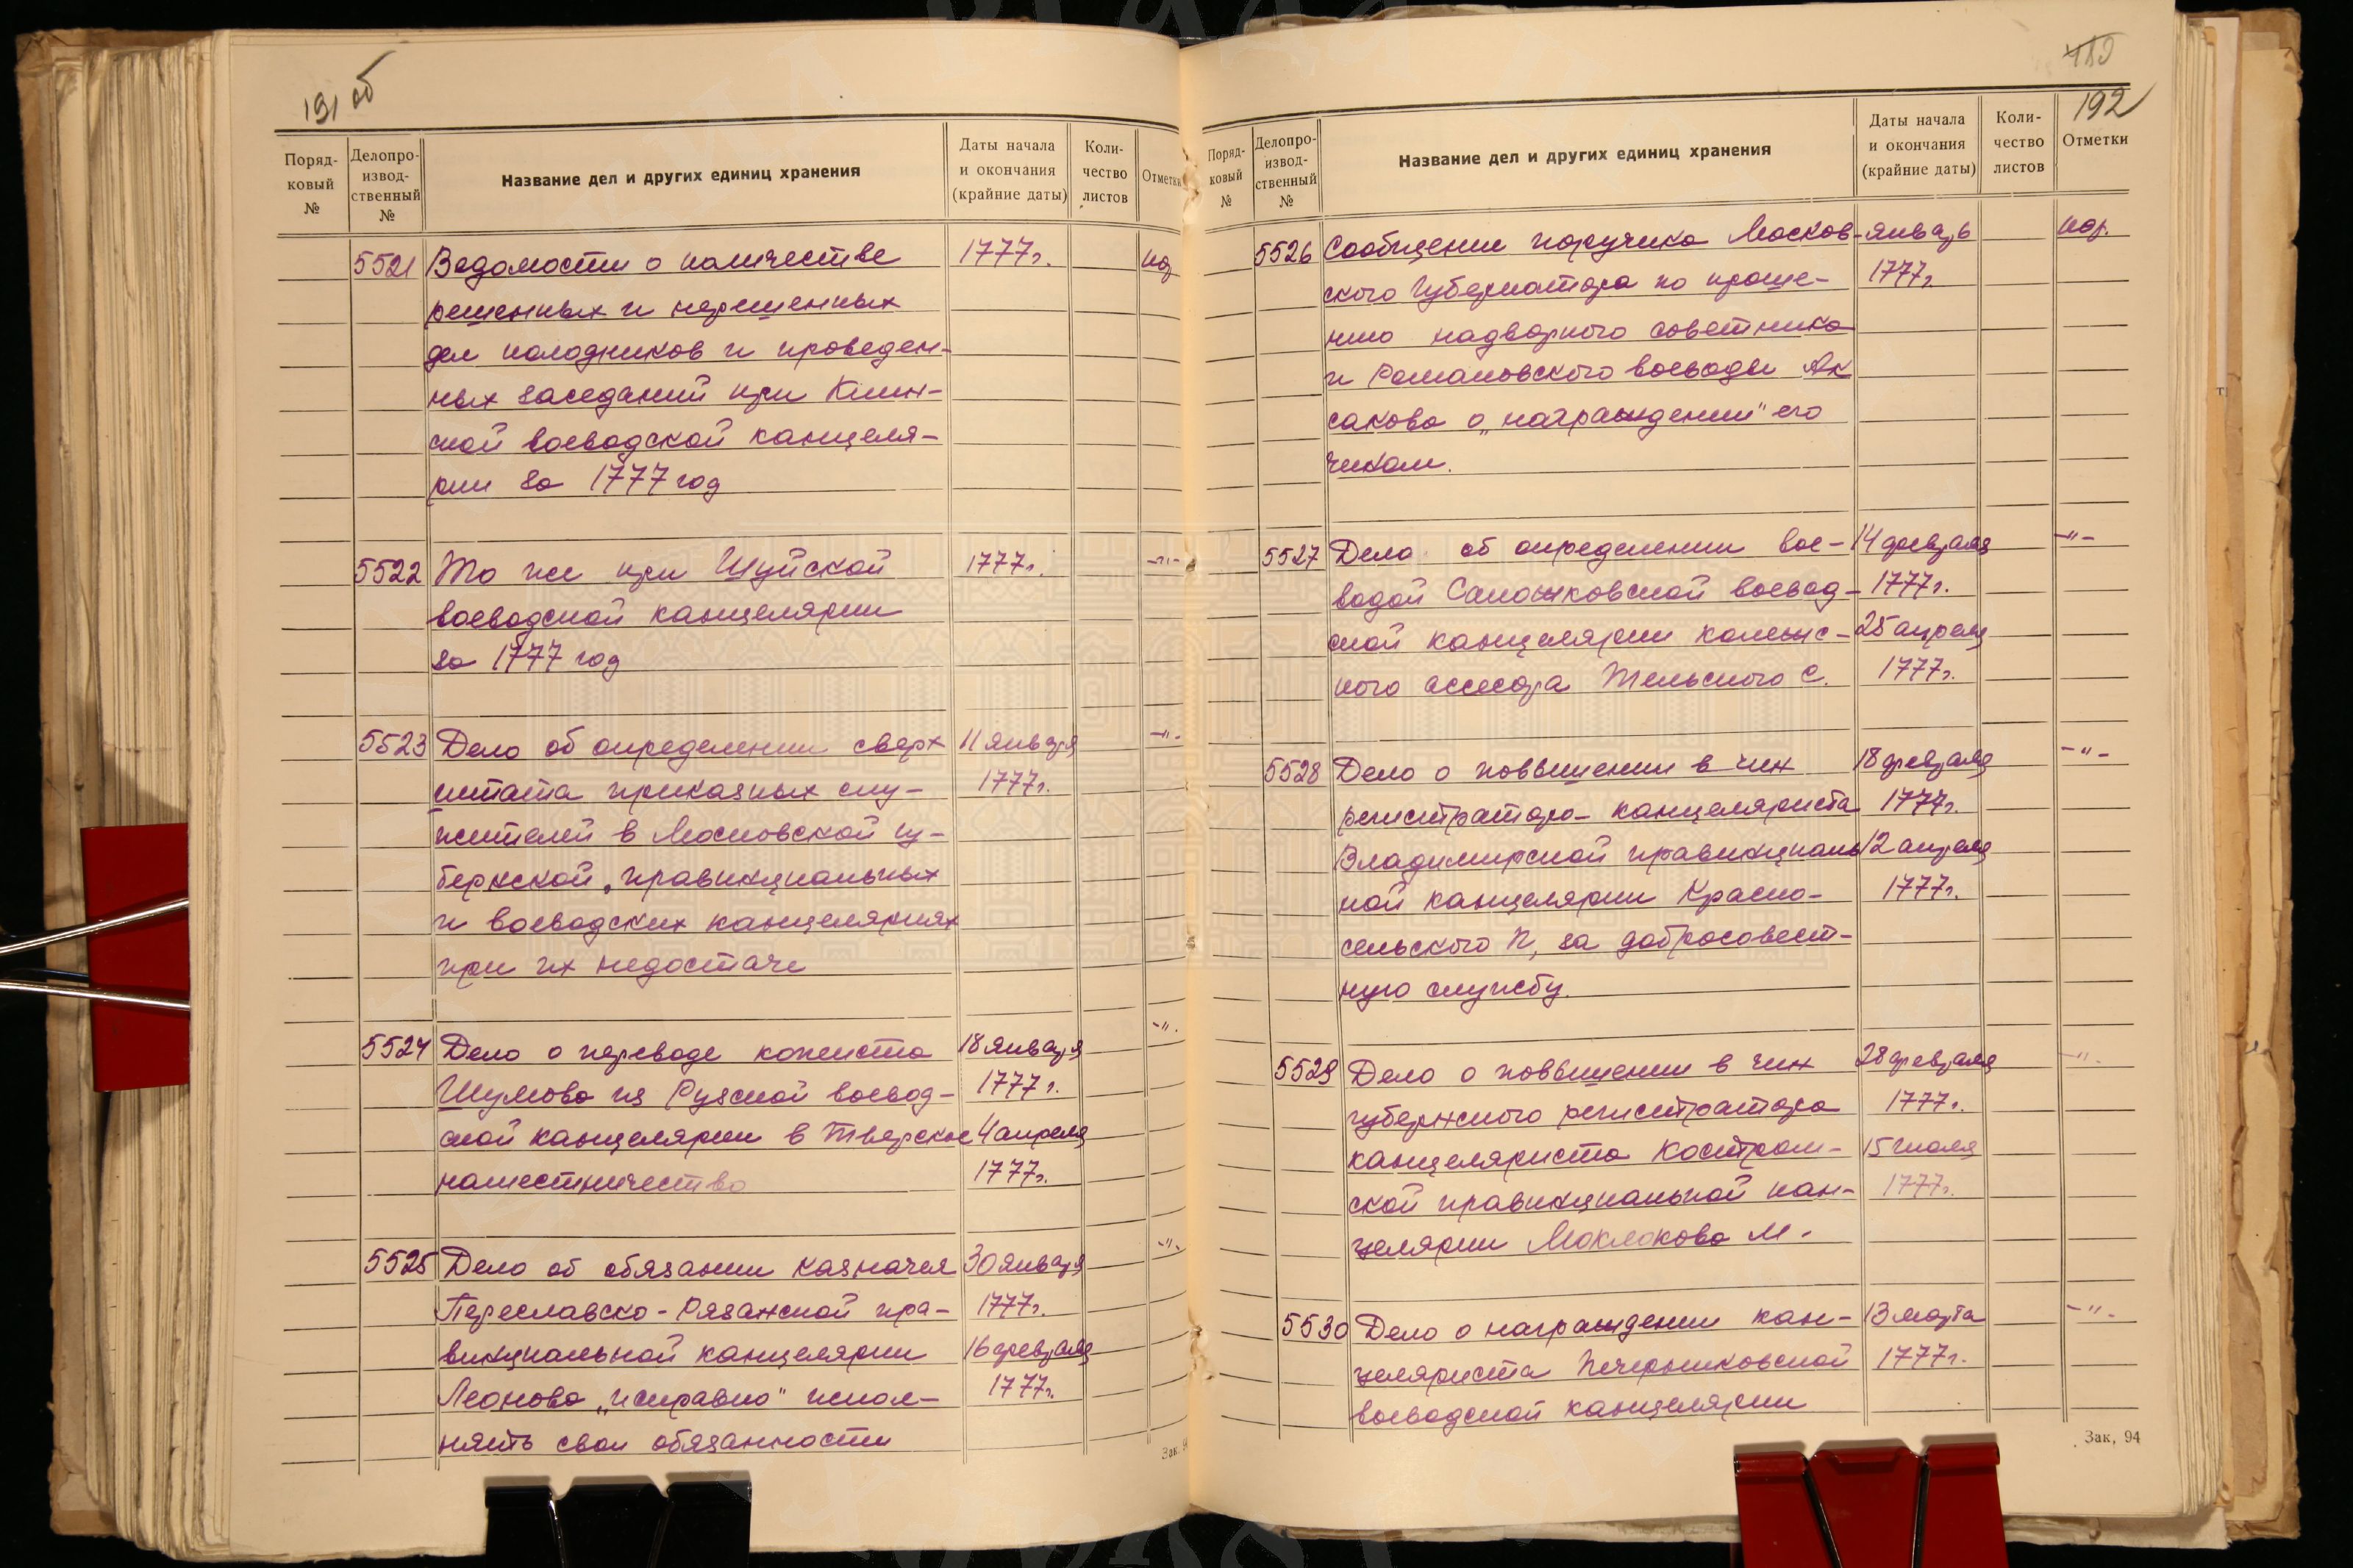 191 об
Поряд-
ковый
№
Делопро-
извод-
ственный
№
Название дел и других единиц хранения
Даты начала
и окончания
(крайние даты)
Коли-
чество
листов
Отметки
5521 Ведомости о количестве 1777 г.
решенных и нерешенных
дел колодников и проведен-
ных заседаний при Клин-
ской воеводской канцеля-
рии за 1777 год
5522 То же при Шуйской 1777 г. -"-
воеводской канцелярии
за 1777 год
5523 Дело об определении сверх 11 января -"-
штата приказных слу- 1777 г.
жителей в Московской гу-
бернской, правинциальных
и воеводских канцеляриях
при их недостаче
5524 Дело о переводе копеиста 18 января -"-
Шумова из Рузской воевод- 1777 г.
ской канцелярии в Тверское 4 апреля
наместничество 1777 г.
5525 Дело об обязании казначея 30 января -"-
Переславско-Рязанской пра- 1777 г.
винциальной канцелярии 16 февраля
Леонова „исправно" испол- 1777 г.
нять свои обязанности
Зак. 9
192
Поряд-
ковый
№
Делопро-
извод-
ственный
№
Название дел и других единиц хранения
Даты начала
и окончания
(крайние даты)
Коли-
чество
листов
Отметки
5526 Сообщение поручика Москов- январь
ского губернатора по проше- 1777 г.
нию надворного советника
и Романовского воеводы Ак
сакова о „награждении" его
чином.
5527 Дело об определении вое- 14 февраля -"-
водой Сапожковской воевод- 1777 г.
ской канцелярии коллежс- 25 апреля
кого ассесора Тельского С. 1777 г.
5528 Дело о повышении в чин 18 февраля -"-
регистратора - канцеляриста 1777 г.
Владимирской правинциаль 12 апреля
ной канцелярии Красно- 1777 г.
сельского П, за добросовест-
ную службу.
5529 Дело о повышении в чин 28 февраля -"-
губернского регистратора 1777 г.
канцеляриста Костром- 15 июля
ской правинциальной кан- 1777 г.
целярии Моклокова М.
5530 Дело о награждении кан- 13 марта -"-
целяриста Печерниковской 1777 г.
воеводской канцелярии
Зак, 94